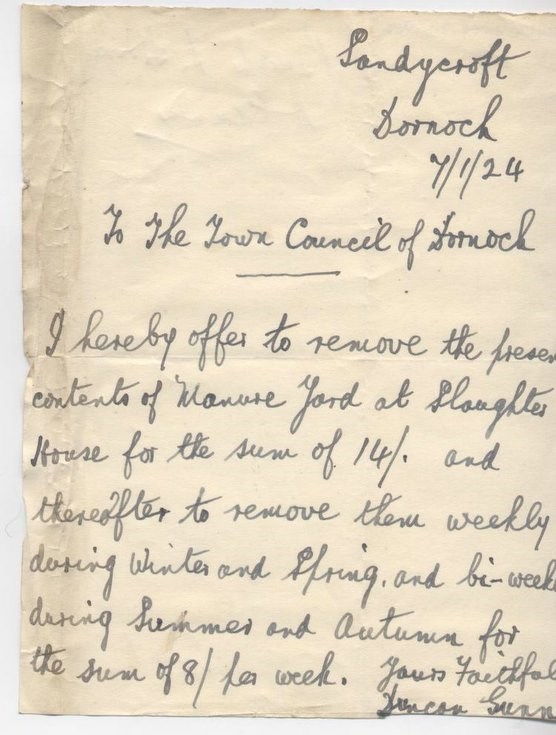 Sandycroft
Dornoch
7/1/24
To The Town Council of Dornoch
I hereby offer to remove the presen
contents of Manure Yard at Slaughter
House for the sum of 14/. and
thereafter to remove them weekly
during Winter and Spring, and bi-week
during Summer and Autumn for
the sum of 8/ per week. Yours Faithful
Duncan Gunn